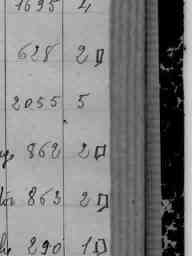 1695 4
628 2
2055 5
862 2
863 2
290 1